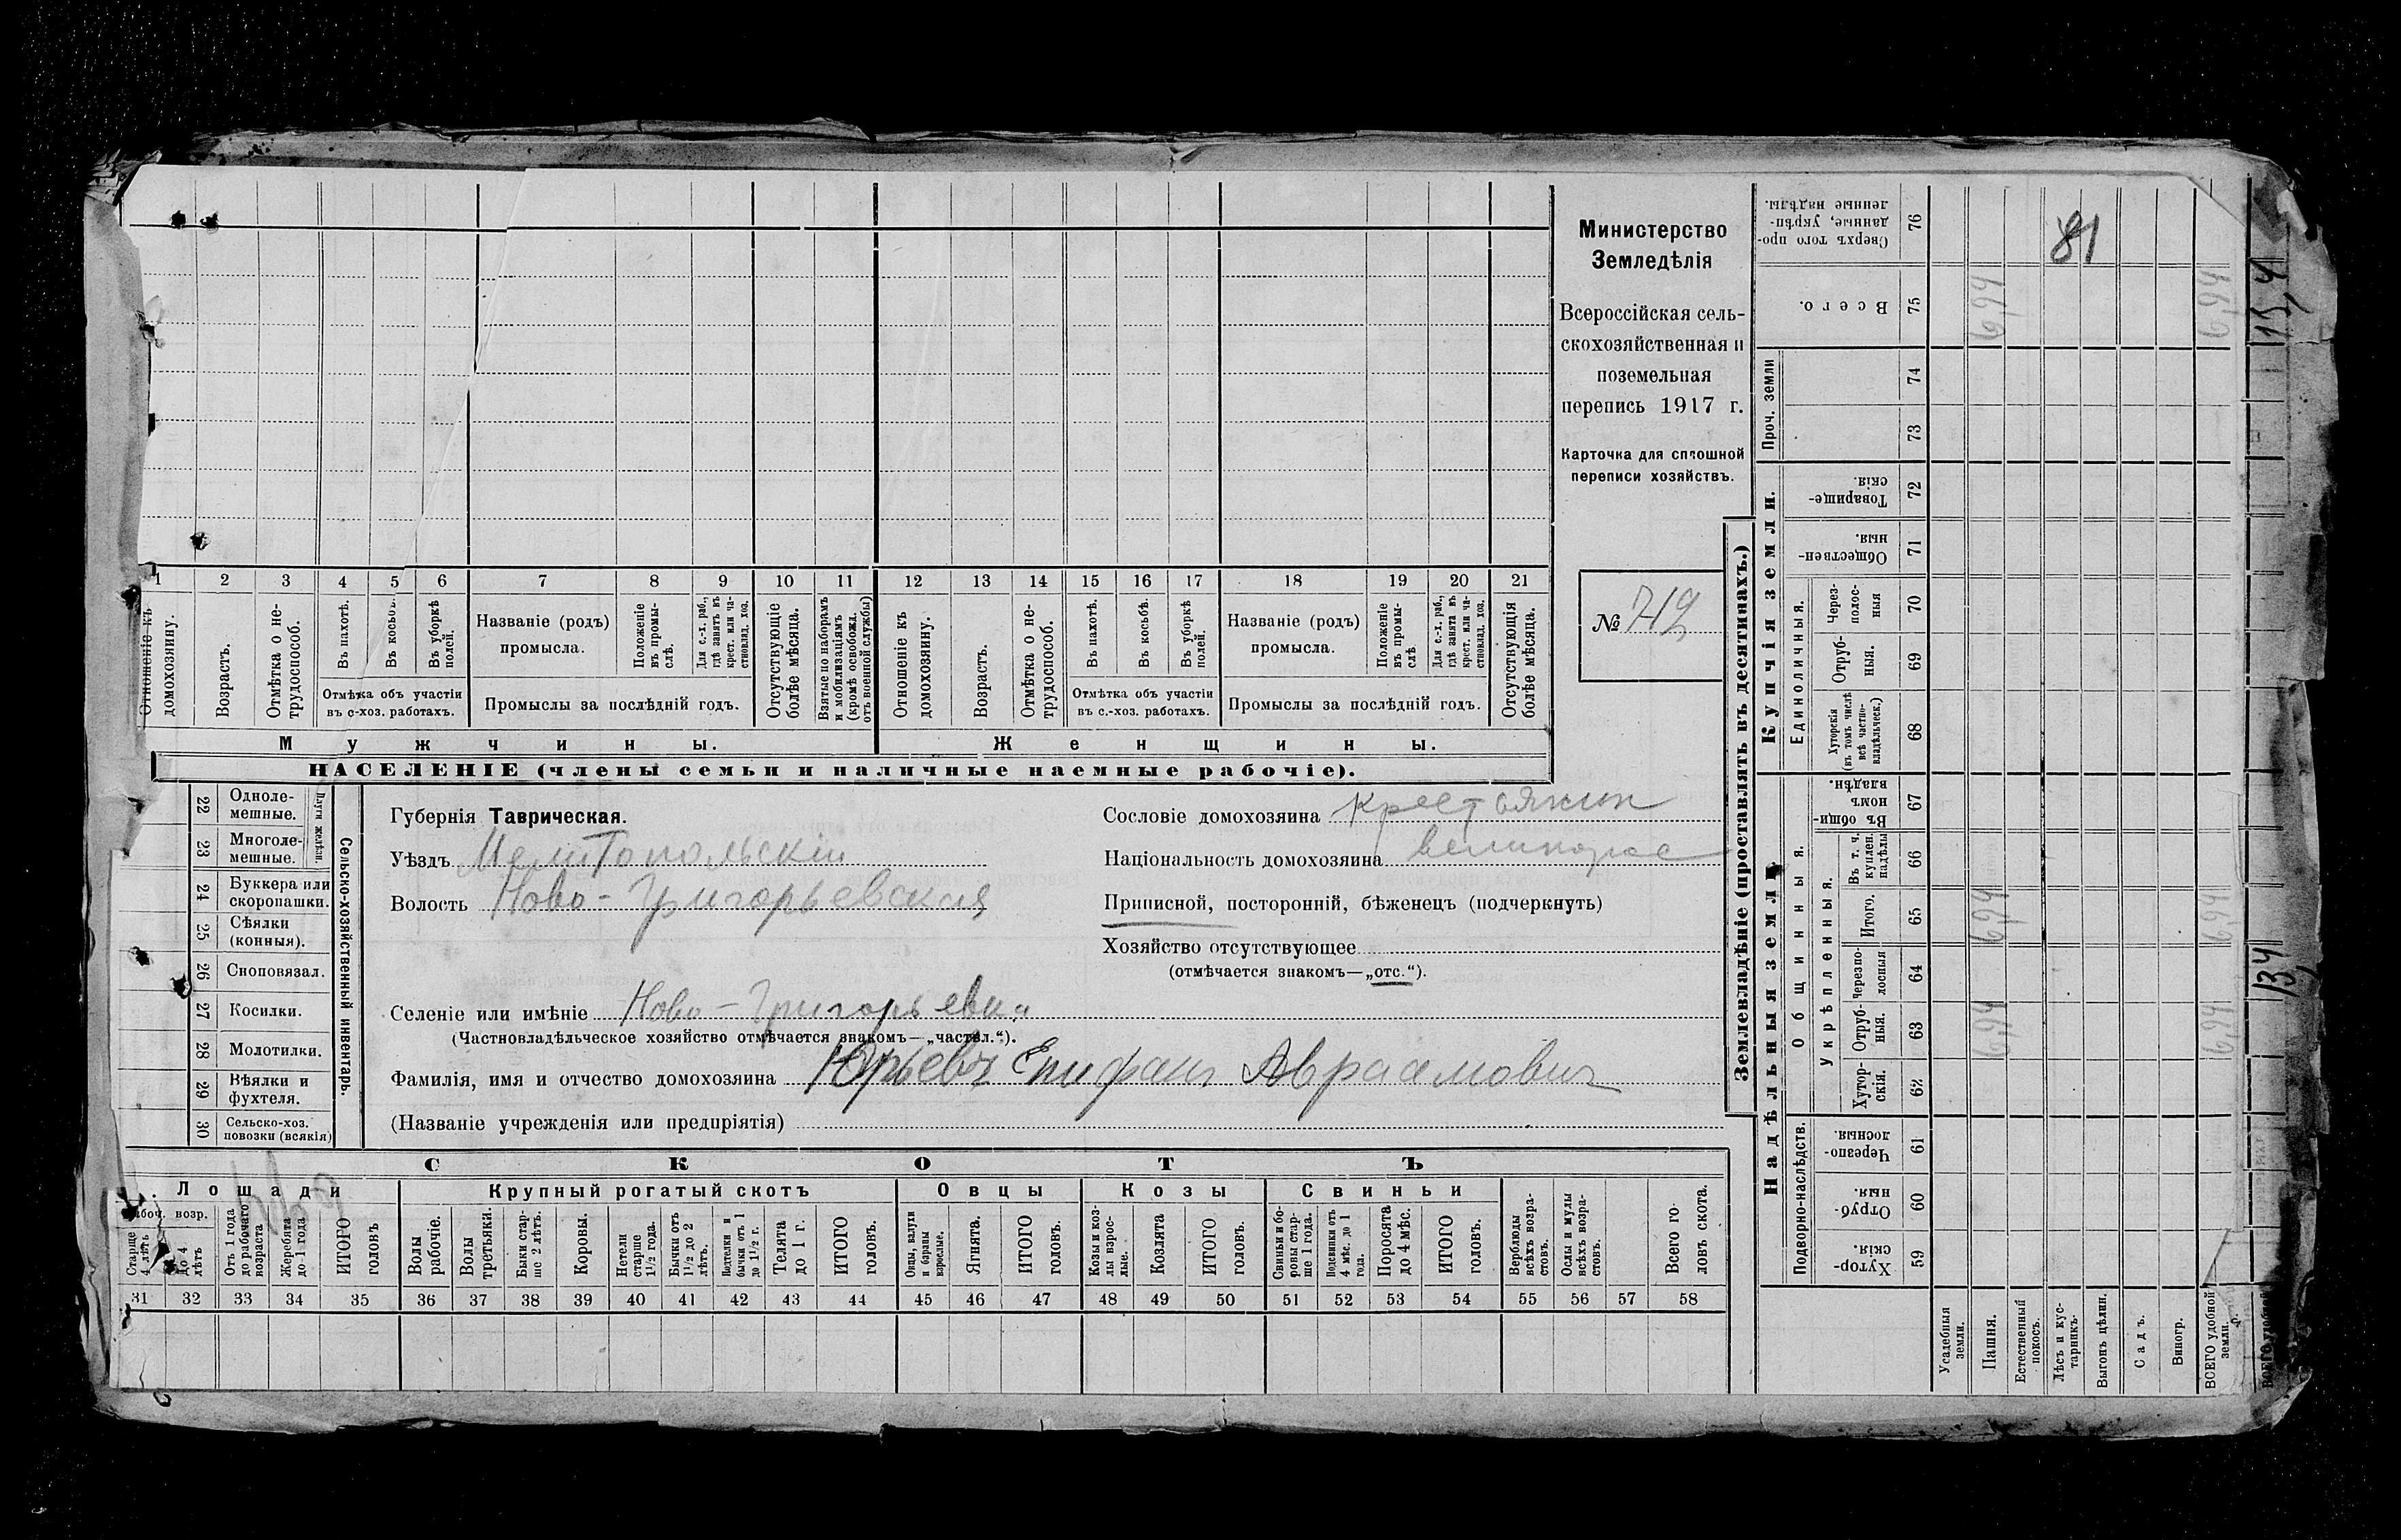 Министерство
Земледѣлія
Всероссійская сель-
скохозяйственная и
поземельная
перепись 1917 г.
Карточка для сплошной
переписи хозяйствъ.
№ 719
1 2 3 4 5 6 7 8 9 10 11 12 13 14 15 16 17 18 19 20 21
Отношеніе къ домохозяину.
Возрастъ.
Отмѣтка о не-трудоспособ.
Въ пахотѣ.
Въ косьбѣ.
Въ уборкѣ полей.
Отмѣтка объ участіи
въ с-хоз. работахъ.
Названіе (родъ)
промысла.
Положеніе въ промы-слѣ.
Для с.-х. раб., гдѣ занятъ въ крест. или ча-стновлад. хоз.
Промыслы за послѣдній годъ.
Отсутствующіе болѣе мѣсяца.
Взятые по наборамъ и мобилизаціямъ (кромѣ освобожд. отъ военной службы)
Отношеніе къ домохозяину.
Возрастъ.
Отмѣтка о не-трудоспособ.
Въ пахотѣ.
Въ косьбѣ.
Въ уборкѣ полей.
Отмѣтка объ участіи
въ с.-хоз. работахъ.
Названіе (родъ)
промысла.
Положеніе въ промы-слѣ
Для с.-х. раб., гдѣ занята въ крест. или ча-стновлад. хоз.
Промыслы за послѣдній годъ.
Отсутствующія болѣе мѣсяца.
Мужчины.
Женщины.
НАСЕЛЕНІЕ (члены семьи и наличные наемные рабочіе).
Сельско-хозяйственный инвентарь.
Плуги желѣзн.
22 Одноле-мешные.
23 Многоле-мешные.
24 Буккера или скоропашки.
25 Сѣялки (конныя).
26 Сноповязал.
27 Косилки.
28 Молотилки.
29 Вѣялки и фухтеля.
30 Сельско-хоз. повозки (всякія)
Губернія Таврическая.
Уѣздъ Мелитопольскій
Волость Ново-Григорьевская
Сословіе домохозяина крестьянин
Національность домохозяина великорос
Приписной, посторонній, бѣженецъ (подчеркнуть)
Хозяйство отсутствующее
(отмѣчается знакомъ—„отс.“).
Селеніе или имѣніе Ново-Григорьевка
(Частновладѣльческое хозяйство отмѣчается знакомъ—„частвл.“).
Фамилія, имя и отчество домохозяина Юрьевъ Епифанъ Авраамовичъ
(Названіе учрежденія или предпріятія)
СКОТЪ
Лошади
Крупный рогатый скотъ
Овцы
Козы
Свиньи
Рабоч. возр.
Старше 4 лѣтъ
До 4 лѣтъ
Отъ 1 года до рабочаго возраста
Жеребята до 1 года
ИТОГО головъ
Волы рабочіе.
Волы третьяки.
Быки стар-ше 2 лѣтъ.
Коровы.
Нетели старше 1½ года.
Бычки отъ 1½ до 2 лѣтъ.
Подтелки и бычки отъ 1 до 1½ г.
Телята до 1 г.
ИТОГО головъ.
Овцы, валухи и бараны взрослые.
Ягнята.
ИТОГО головъ.
Козы и коз-лы взрос-лые.
Козлята
ИТОГО головъ.
Свиньи и бо-ровы стар-ше 1 года.
Подсвинки отъ 4 мѣс. до 1 года.
Поросята до 4 мѣс.
ИТОГО головъ.
Верблюды всѣхъ возра-стовъ.
Ослы и мулы всѣхъ возра-стовъ.
Всего го-ловъ скота.
31 32 33 34 35 36 37 38 39 40 41 42 43 44 45 46 47 48 49 50 51 52 53 54 55 56 57 58
Землевладѣніе (проставлять въ десятинахъ.)
Купчія земли.
Надѣльныя земли.
Сверхъ того про-данные, укрѣп-ленные надѣлы. 76
81
Всего. 75 6,94 6,94
115,4
Проч. земли
74
73
Товарище-скія. 72
Обществен-ныя. 71
Единоличныя.
Через-полос-ныя 70
Отруб-ныя. 69
Хуторскія (въ томъ числѣ всѣ частно-владѣльческ.) 68
Общинныя.
Въ общи-номъ владѣн. 67
Укрѣпленныя.
Въ т. ч. куплен. надѣлы 66
Итого. 65 6,94 6,94
Черезпо-лосныя 64
134
Отруб-ныя. 63 6,94 6,94
Хутор-скія. 62
Подворно-наслѣдств.
Черезпо-лосныя 61
Отруб-ныя. 60
Хутор-скія. 59
Усадебныя земли.
Пашня.
Естественный покосъ.
Лѣсъ и кус-тарникъ.
Выгонъ цѣлин.
Садъ.
Виногр.
ВСЕГО удобной земли.
ВСЕГО удобной